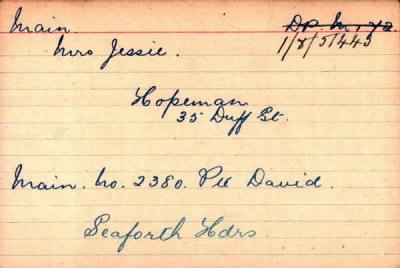 Main
Mrs Jessie.
1/8/5/443
Hopeman
35 Duff St.
Main. No. 2380. Pte David.
Seaforth Hdrs.